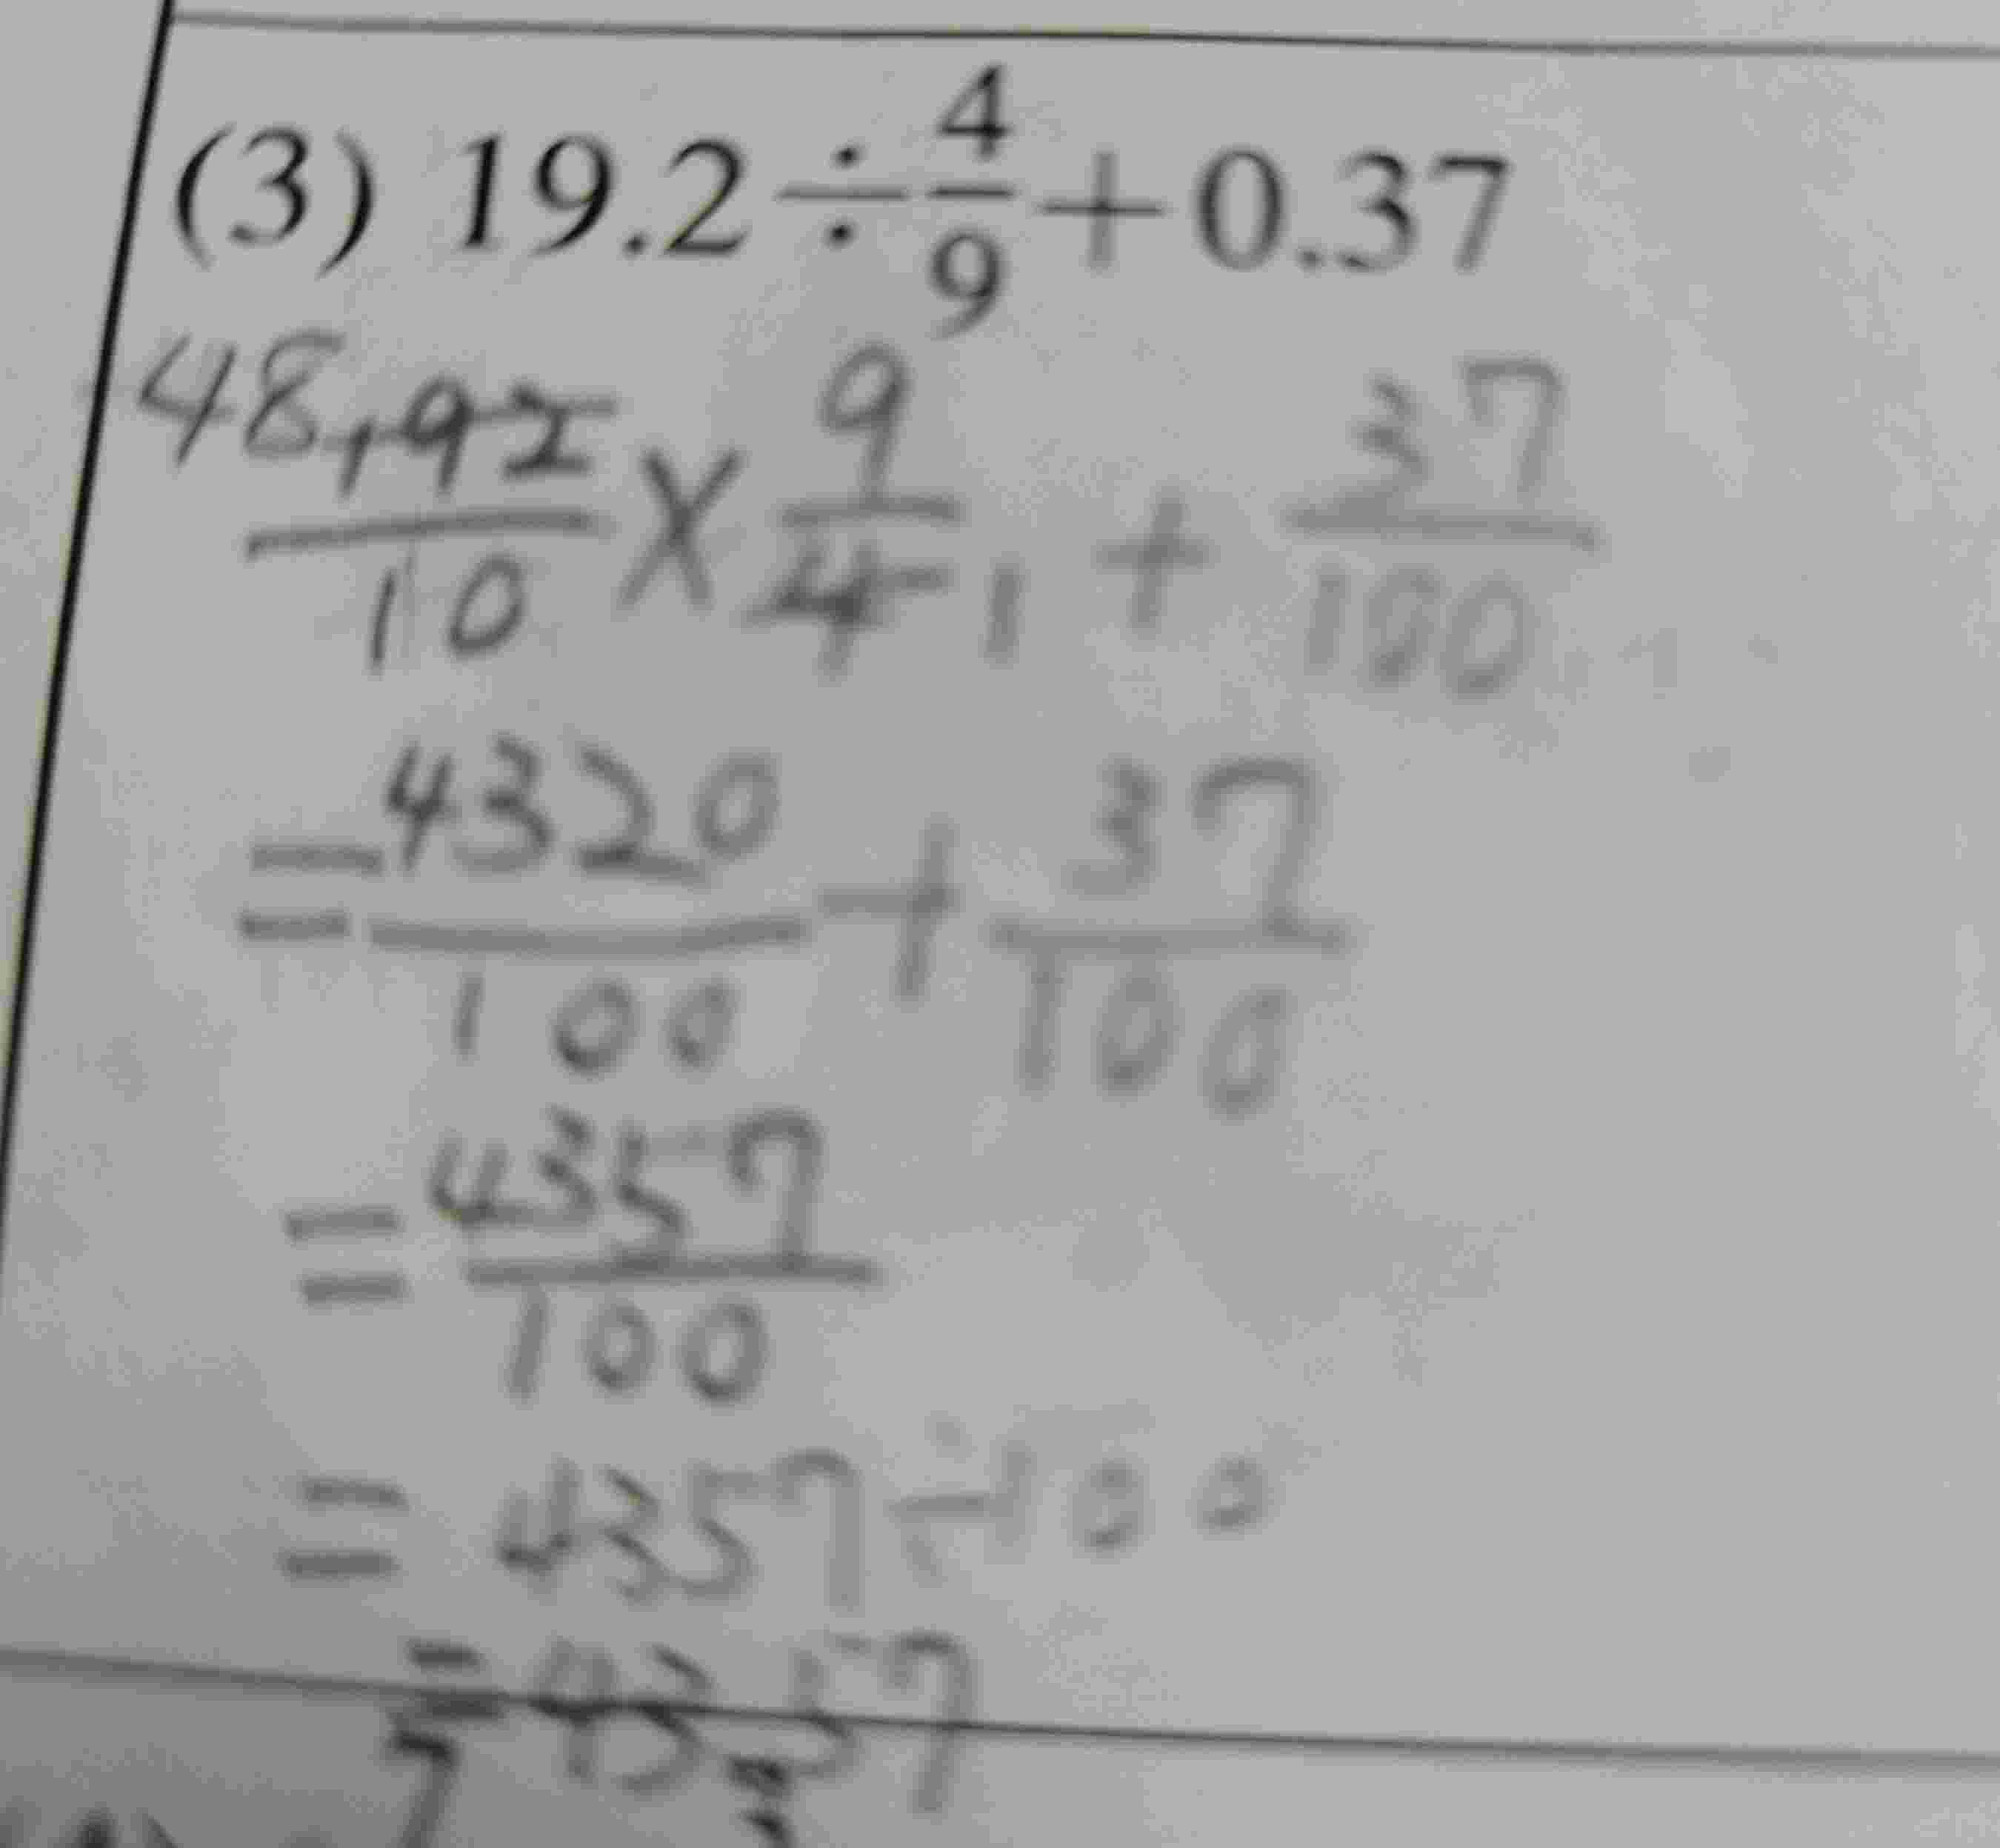 (3) 19.2÷4/9+0.37
48 192/10 × 9/4 1 + 37/100
=4320/100 + 37/100
=4357/100
=4357÷100
=43.57